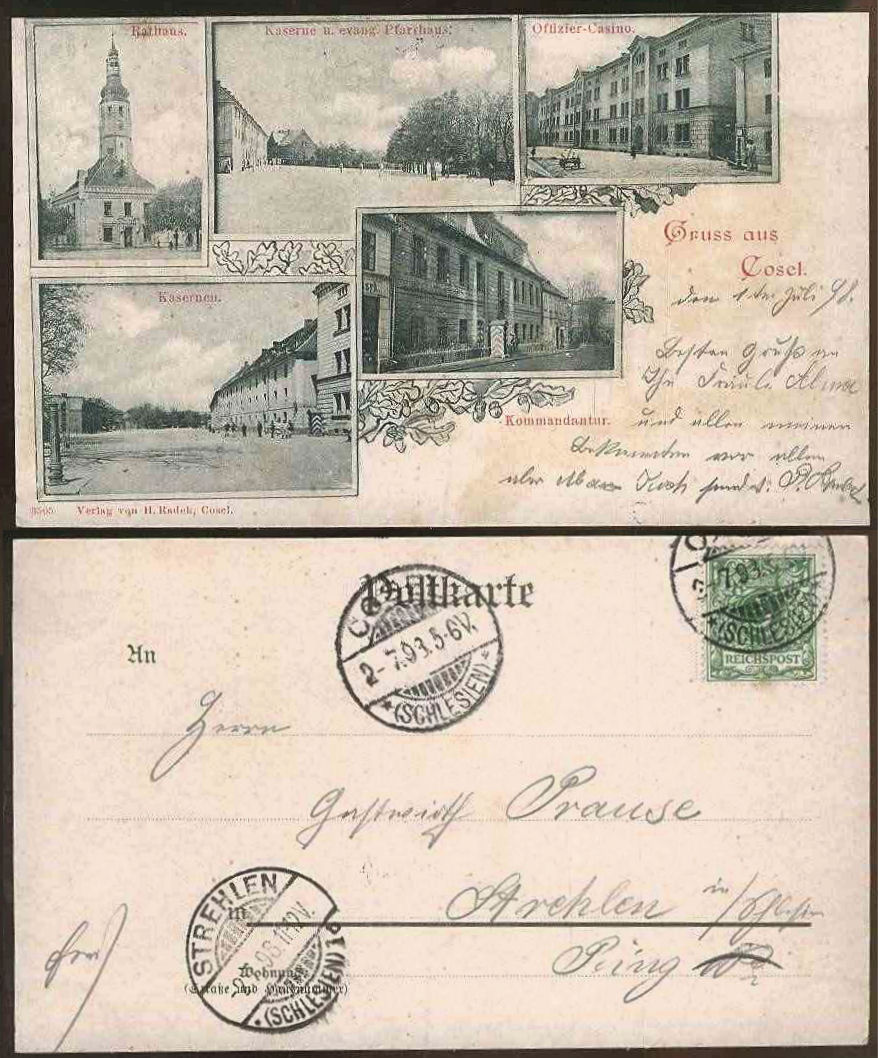 Rathaus.
Kaserne u. evang. Pfarrhaus.
Offizier-Casino.
Gruss aus
Cosel.
den 1ten Juli 98.
Kasernen.
Besten Gruß an
Ihr Fräul. Alma
und allen meinen
Kommandantur.
Bekannten vor allen
aber
3505 Verlag von H. Radek, Cosel.
Postkarte
7.98.
(SCHLESIEN)
REICHSPOST
2-7.98.5-6V.
*(SCHLESIEN)*
An
Herrn
Gastwirth Prause
STREHLEN
in Strehlen in/Schlesien
98.11-12V.
Ring
Wohnung
(Straße und Hausnummer)
*(SCHLESIEN)1c
frei